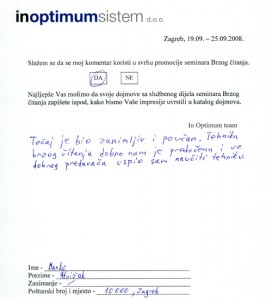 inoptimumsistem d.o.o.
Zagreb, 19.09. – 25.09.2008.
Slažem se da se moj komentar koristi u svrhu promocije seminara Brzog čitanja.
DA NE
Najljepše Vas molimo da svoje dojmove sa službenog dijela seminara Brzog
čitanja zapišete ispod, kako bismo Vaše impresije uvrstili u katalog dojmova.
In Optimum team
Tečaj je bio zanimljiv i poučan. Tehnika
brzog čitanja dobro nam je predočena i uz
dobrog predavača uspio sam naučiti tehniku.
Ime - Marko
Prezime -
Zanimanje -
Poštanski broj i mjesto - 10 000, Zagreb